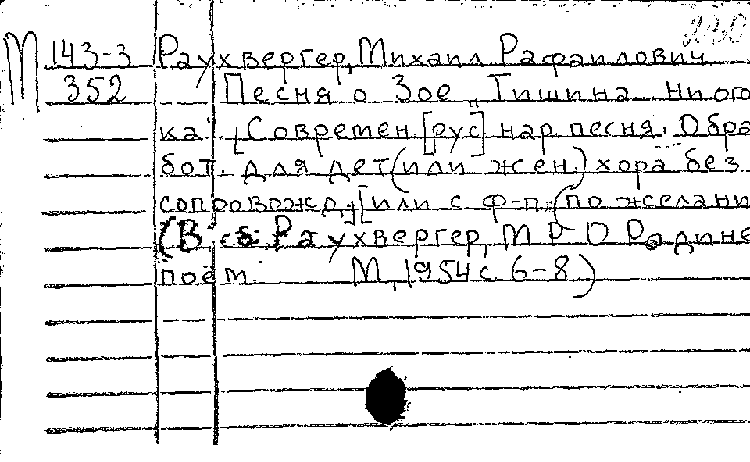 230
М 143-3 Раухвергер, Михаил Рафаилович
352 Песня о Зое „Тишина. Ни ого
ка" [Современ. [рус] нар песня. Обра
бот. для дет (или жен.) хора без
сопровожд.,] [или с ф-п. (по желани
(В сб Раухвергер, М Р О Родине
поём. М, 1954 с. 6-8.)